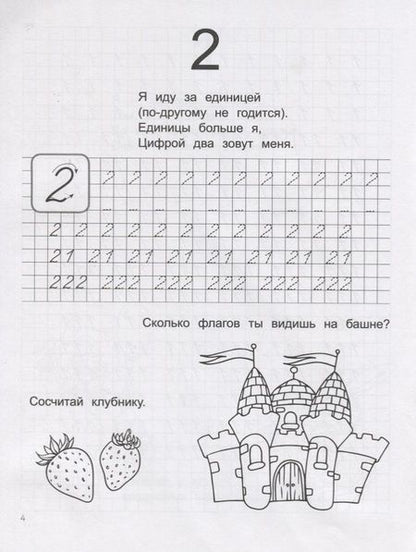 2
Я иду за единицей
(по-другому не годится).
Единицы больше я,
Цифрой два зовут меня.
2 2 2 2 2 2 2 2 2 2 2 2
2 2 2 2 2 2 2 2 2
21 21 21 21 21 21 21 21
222 222 222 222 222 222 222
Сколько флагов ты видишь на башне?
Сосчитай клубнику.
4